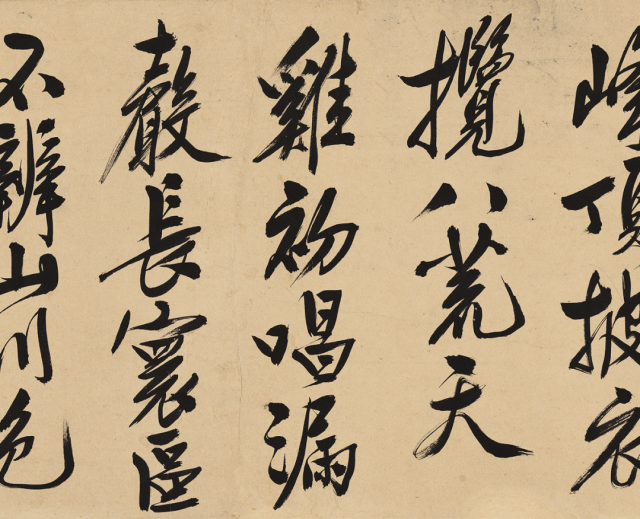 峰頂披衣
攬八荒天
雞初唱漏
聲長寰區
不辨山川色